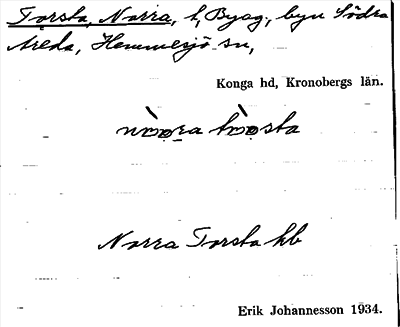 Torsta, Norra, t, Byag, byn Södra
Åreda, Hemmesjö sn,
Konga hd, Kronobergs län.
nòrra tòrsta
Norra Torsta hb
Erik Johannesson 1934.